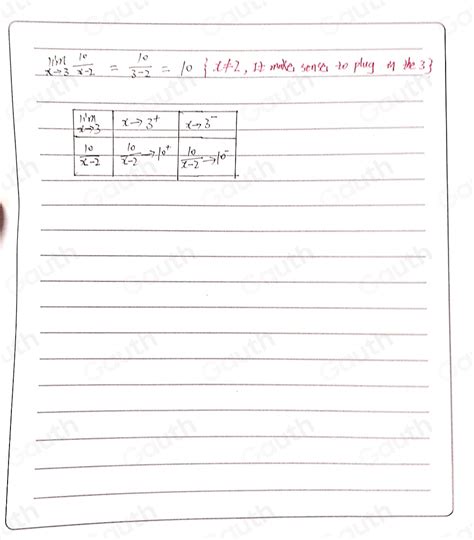 lim x→3 10/x-2 = 10/3-2 = 10 { x≠2, It makes sense to plug in the 3}
lim x→3 | x→3⁺ | x→3⁻
10/x-2 | 10/x-2 →10⁺ | 10/x-2 →10⁻